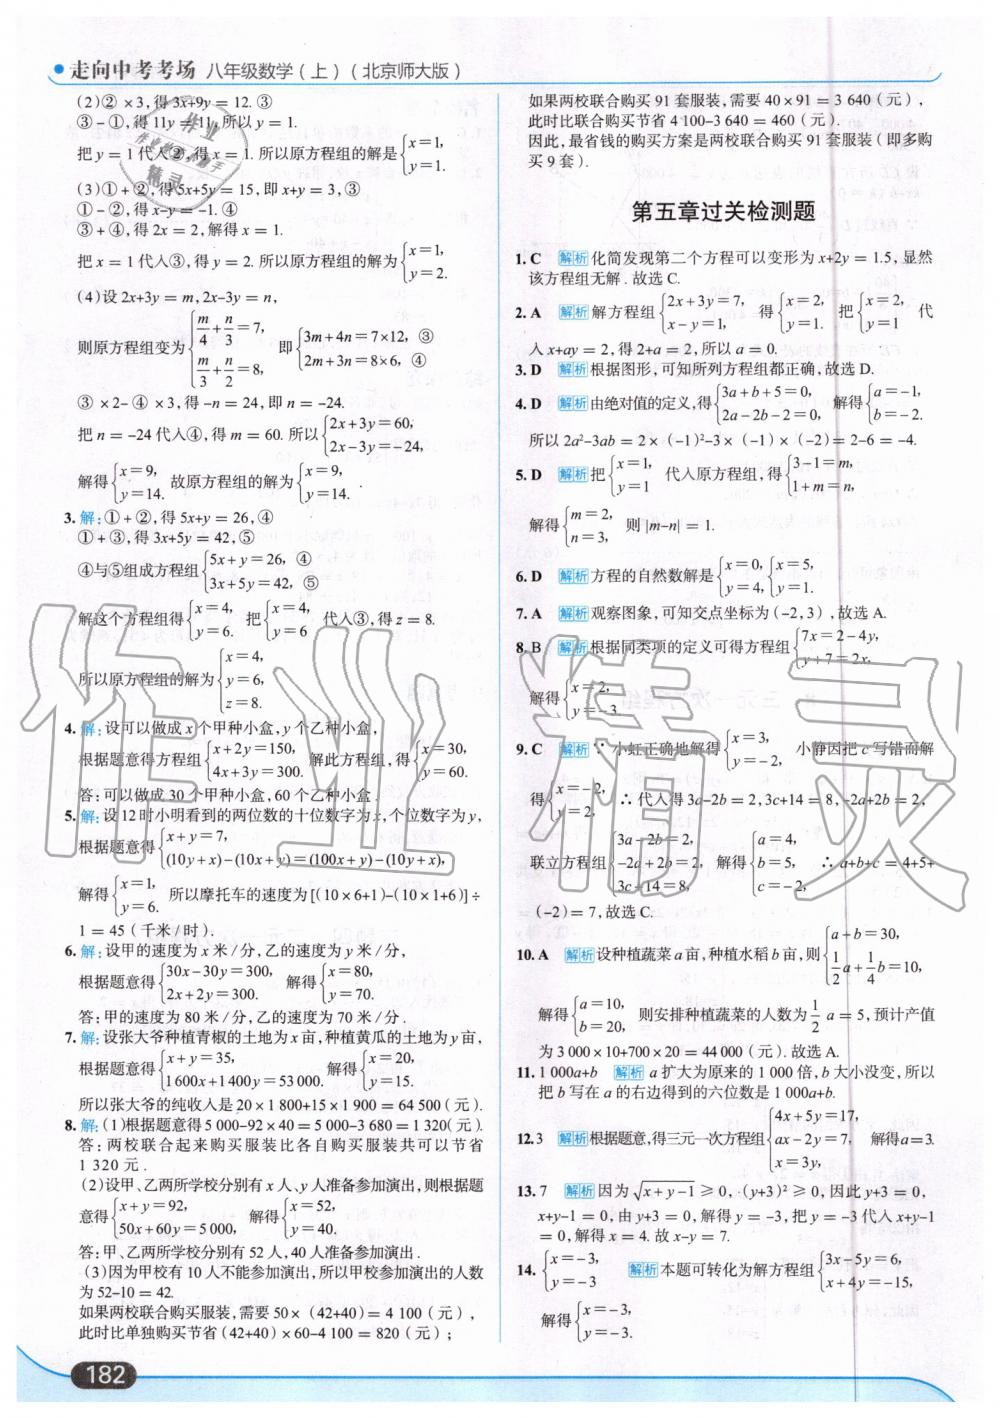 走向中考考场 八年级数学(上)(北京师大版)
(2)② ×3,得 3x+9y = 12. ③
③-①,得 11y = 11,所以 y = 1.
把 y = 1 代入②,得 x = 1. 所以原方程组的解是{x = 1, y = 1.
(3)①+②,得 5x+5y = 15,即 x+y = 3,③
①-②,得 x-y = -1. ④
③+④,得 2x = 2,解得 x = 1.
把 x = 1 代入③,得 y = 2. 所以原方程组的解为{x = 1, y = 2.
(4)设 2x+3y = m,2x-3y = n,
则原方程组变为{m/4 + n/3 = 7, m/3 + n/2 = 8, 即{3m+4n = 7×12, ③ 2m+3n = 8×6, ④
③ ×2-④ ×3,得-n = 24,即 n = -24.
把 n = -24 代入④,得 m = 60. 所以{2x+3y = 60, 2x-3y = -24,
解得{x = 9, y = 14. 故原方程组的解为{x = 9, y = 14.
3. 解:①+②,得 5x+y = 26,④
①+③,得 3x+5y = 42,⑤
④与⑤组成方程组{5x+y = 26, ④ 3x+5y = 42, ⑤
解这个方程组得{x = 4, y = 6. 把{x = 4, y = 6 代入③,得 z = 8.
所以原方程组的解为{x = 4, y = 6, z = 8.
4. 解:设可以做成 x 个甲种小盒,y 个乙种小盒,
根据题意得方程组{x+2y = 150, 4x+3y = 300. 解此方程组,得{x = 30, y = 60.
答:可以做成 30 个甲种小盒,60 个乙种小盒.
5. 解:设 12 时小明看到的两位数的十位数字为 x,个位数字为 y,
根据题意得{x+y = 7, (10y+x)-(10x+y) = (100x+y)-(10y+x),
解得{x = 1, y = 6. 所以摩托车的速度为[(10×6+1)-(10×1+6)]÷
1 = 45(千米/时).
6. 解:设甲的速度为 x 米/分,乙的速度为 y 米/分,
根据题意得{30x-30y = 300, 2x+2y = 300. 解得{x = 80, y = 70.
答:甲的速度为 80 米/分,乙的速度为 70 米/分.
7. 解:设张大爷种植青椒的土地为 x 亩,种植黄瓜的土地为 y 亩,
根据题意得{x+y = 35, 1 600x+1 400y = 53 000. 解得{x = 20, y = 15.
所以张大爷的纯收入是 20×1 800+15×1 900 = 64 500(元).
8. 解:(1)根据题意得 5 000-92×40 = 5 000-3 680 = 1 320(元).
答:两校联合起来购买服装比各自购买服装共可以节省
1 320 元.
(2)设甲、乙两所学校分别有 x 人、y 人准备参加演出,则根据题
意得{x+y = 92, 50x+60y = 5 000, 解得{x = 52, y = 40.
答:甲、乙两所学校分别有 52 人,40 人准备参加演出.
(3)因为甲校有 10 人不能参加演出,所以甲校参加演出的人数
为 52-10 = 42.
如果两校联合购买服装,需要 50×(42+40) = 4 100(元),
此时比单独购买节省(42+40)×60-4 100 = 820(元);
如果两校联合购买 91 套服装,需要 40×91 = 3 640(元),
此时比联合购买节省 4 100-3 640 = 460(元).
因此,最省钱的购买方案是两校联合购买 91 套服装(即多购
买 9 套).
第五章过关检测题
1. C 解析 化简发现第二个方程可以变形为 x+2y = 1.5,显然
该方程组无解. 故选 C.
2. A 解析 解方程组{2x+3y = 7, x-y = 1, 得{x = 2, y = 1. 把{x = 2, y = 1 代
入 x+ay = 2,得 2+a = 2,所以 a = 0.
3. D 解析 根据图形,可知所列方程组都正确,故选 D.
4. D 解析 由绝对值的定义,得{3a+b+5 = 0, 2a-2b-2 = 0, 解得{a = -1, b = -2.
所以 2a²-3ab = 2×(-1)²-3×(-1)×(-2) = 2-6 = -4.
5. D 解析 把{x = 1, y = 1 代入原方程组,得{3-1 = m, 1+m = n,
解得{m = 2, n = 3, 则 |m-n| = 1.
6. D 解析 方程的自然数解是{x = 0, y = 4, {x = 5, y = 1.
7. A 解析 观察图象,可知交点坐标为(-2,3),故选 A.
8. B 解析 根据同类项的定义可得方程组{7x = 2-4y, y+7 = 2x,
解得{x = 2, y = -3.
9. C 解析 ∵ 小虹正确地解得{x = 3, y = -2, 小静因把 c 写错而解
得{x = -2, y = 2, ∴ 代入得 3a-2b = 2,3c+14 = 8,-2a+2b = 2,
联立方程组{3a-2b = 2, -2a+2b = 2, 3c+14 = 8, 解得{a = 4, b = 5, c = -2, ∴ a+b+c = 4+5+
(-2) = 7,故选 C.
10. A 解析 设种植蔬菜 a 亩,种植水稻 b 亩,则{a+b = 30, 1/2 a + 1/4 b = 10,
解得{a = 10, b = 20, 则安排种植蔬菜的人数为 1/2 a = 5,预计产值
为 3 000×10+700×20 = 44 000(元). 故选 A.
11. 1 000a+b 解析 a 扩大为原来的 1 000 倍,b 大小没变,所以
把 b 写在 a 的右边得到的六位数是 1 000a+b.
12. 3 解析 根据题意,得三元一次方程组{4x+5y = 17, ax-2y = 7, x = 3y, 解得 a = 3.
13. 7 解析 因为 √(x+y-1) ≥ 0,(y+3)² ≥ 0,因此 y+3 = 0,
x+y-1 = 0,由 y+3 = 0,解得 y = -3,把 y = -3 代入 x+y-1
= 0,解得 x = 4. 故 x-y = 7.
14. {x = -3, y = -3 解析 本题可转化为解方程组{3x-5y = 6, x+4y = -15,
解得{x = -3, y = -3.
182
作业精灵